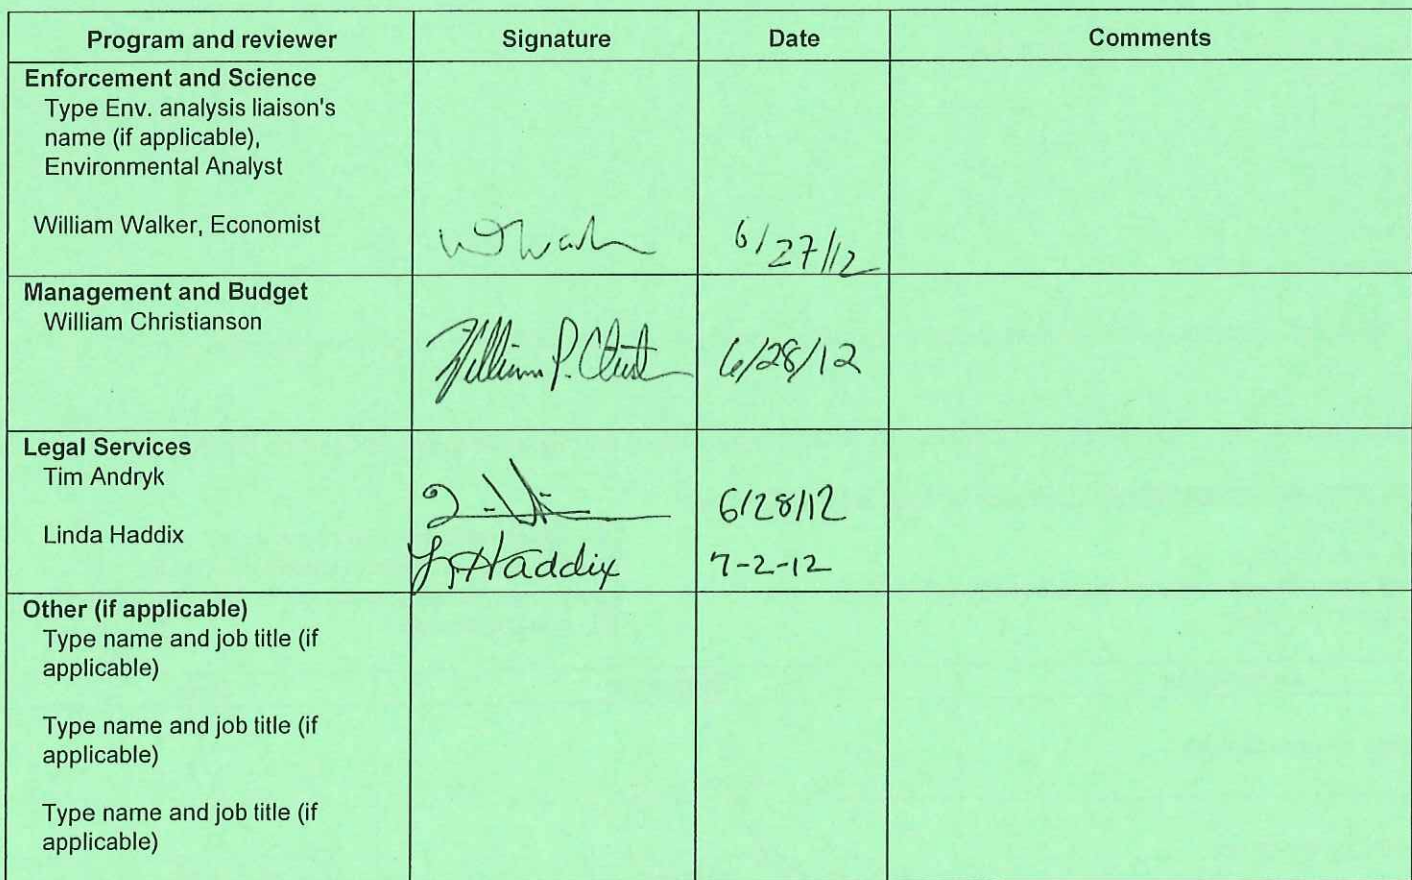 Program and reviewer Signature Date Comments
Enforcement and Science
Type Env. analysis liaison's
name (if applicable),
Environmental Analyst
William Walker, Economist 6/27/12
Management and Budget
William Christianson
William P. Christ 6/28/12
Legal Services
Tim Andryk
6/28/12
Linda Haddix
L Haddix 7-2-12
Other (if applicable)
Type name and job title (if
applicable)
Type name and job title (if
applicable)
Type name and job title (if
applicable)